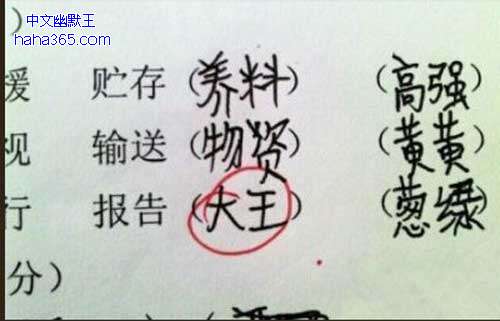 中文幽默王
haha365.com
）
援 贮存（养料） （高强
观 输送（物资） （黄黄
行 报告（大王） （葱绿
分）